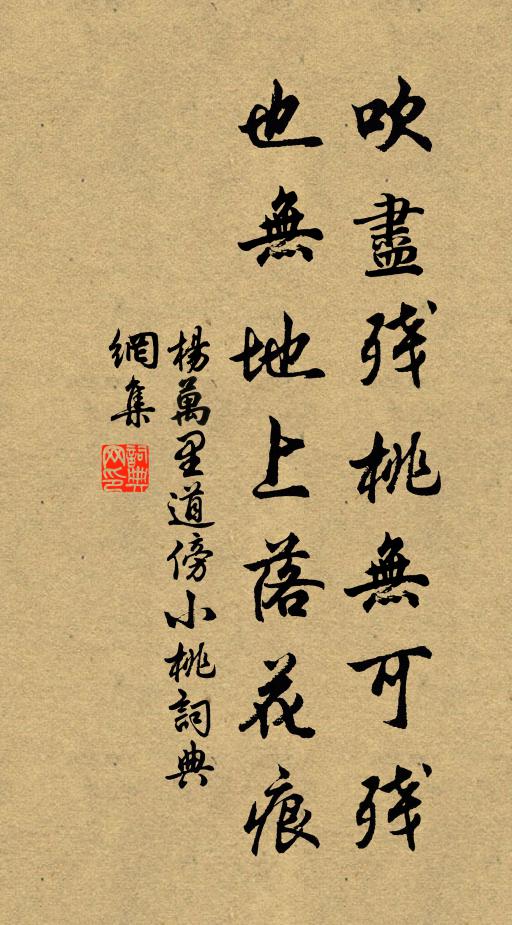 吹盡殘桃無可殘
也無地上落花痕
楊萬里道傍小桃詞典
網集
詞典
网印